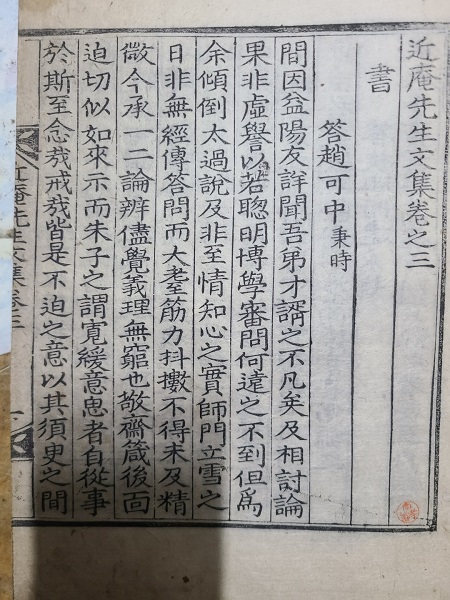 近庵先生文集卷之三
書
答趙可中秉時
間因益陽友詳聞吾弟才諝之不凡矣及相討論
果非虛譽以若聰明博學審問何遠之不到但爲
余傾倒太過說及非至情知心之實師門立雪之
日非無經傳答問而大耋筋力抖擻不得未及精
微今承一二論辨儘覺義理無窮也敬齋箴後面
迫切似如來示而朱子之謂寬緩意思者自從事
於斯至念哉戒哉皆是不迫之意以其須臾之間
近庵先生文集卷三